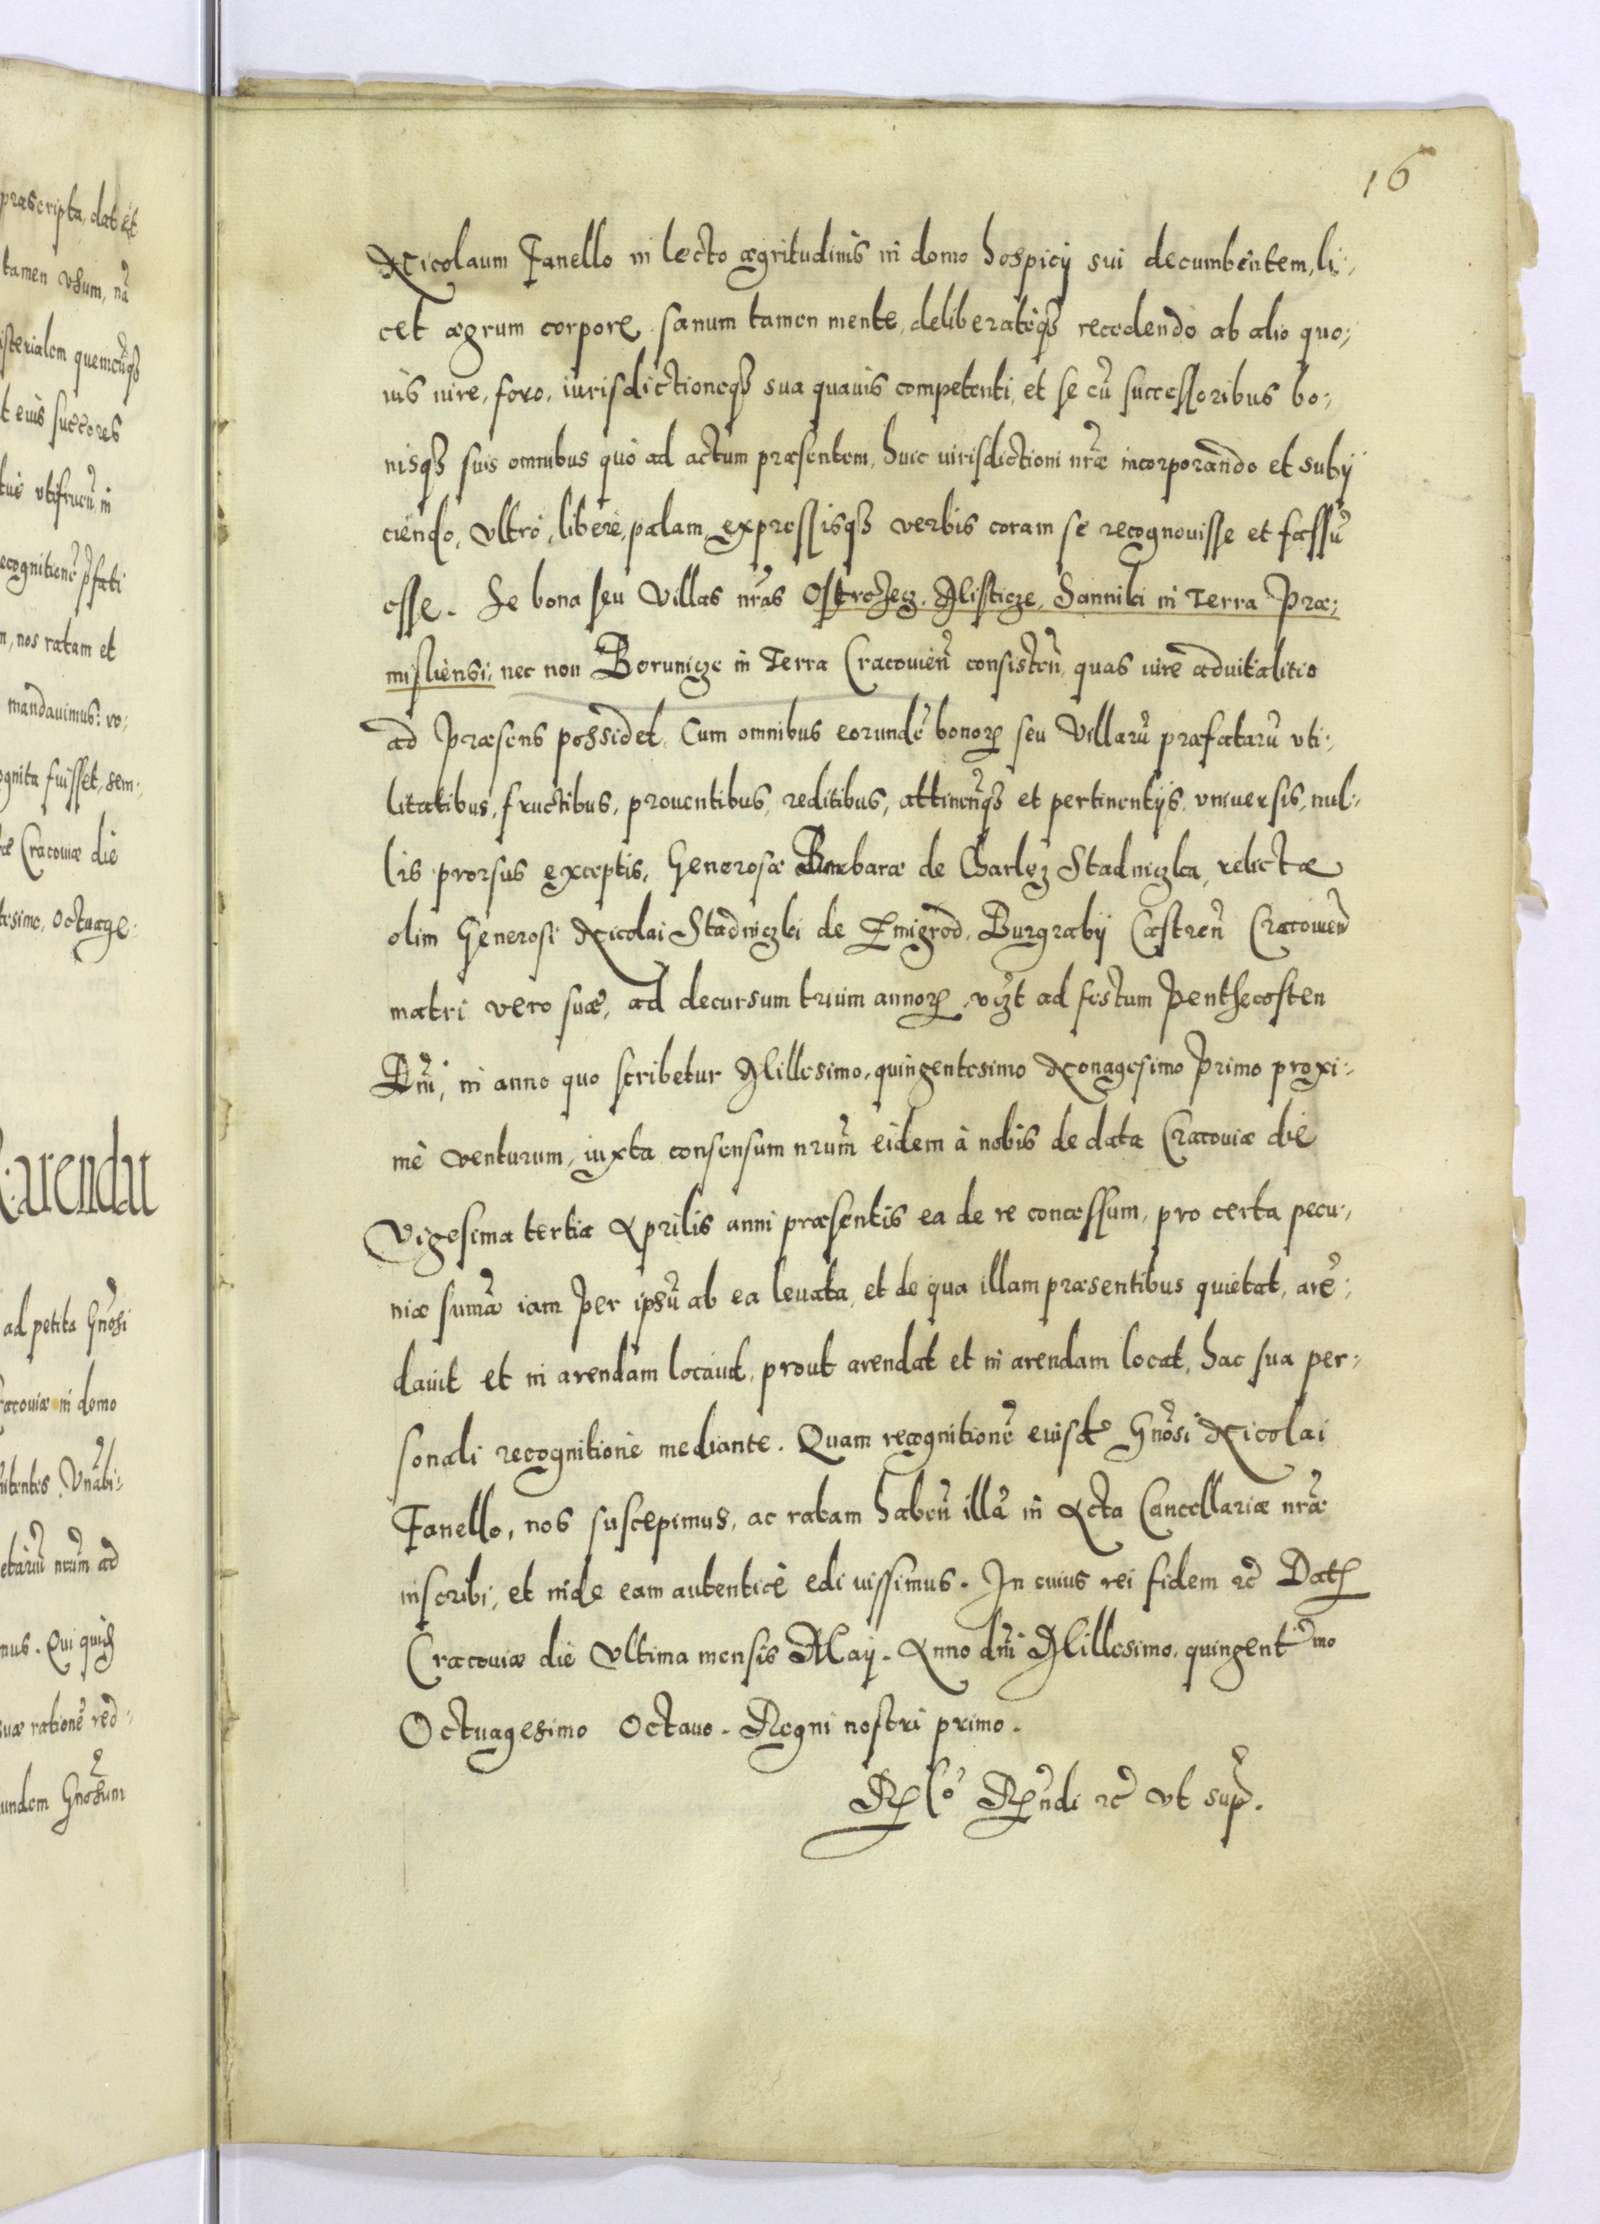 præscripta, dat et
tamen vsum, nã
isterialem quemcũqȝ
t eius succores
tuè vtifrucũ in
ecognitionẽ p̃fati
m, nos ratam et
mandauimus: ro:
ognita fuisset, sem:
æ Cracouiæ die
tesimo, octuage:
arendat
ad petita Gñosi
racouiæ in domo
nitentes
etariũ nrũm ad
mus. Qui quid
suæ rationẽ red:
undem Gñosum
16
Nicolaum Fanello in lecto ægritudinis in domo hospicij sui decumbentem, li:
cet ægrum corpore sanum tamen mente, deliberatèqȝ recedendo ab alio quo:
uis iure, foro, iurisdictioneqȝ sua quauis competenti, et se cũ successoribus bo:
nisqȝ suis omnibus quò ad actum præsentem, huic iurisdictioni nræ incorporando et subij
ciendo, vltrò, liberè, palam, expressisqȝ verbis coram se recognouisse et fassũ
esse. Se bona seu Villas nr̃as Ostrozecz, Misticze, Sanniki in Terra Præ:
misliensi, nec non Borunicze in Terra Cracouieñ consisteñ, quas iure aduitalitio
ad præsens possidet, Cum omnibus eorundẽ bonoꝝ seu Villarũ præfatarũ vti:
litatibus, fructibus, prouentibus, reditibus, attinenũqȝ et pertinentijs, vniuersis, nul:
lis prorsus exceptis, Generosæ Barbaræ de Charlęz Stadniczka, relictæ
olim Generosi Nicolai Stadniczki de Zmigrod, Burgrabij Castreñ Cracouieñ
matri vero suæ, ad decursum trium annoꝝ, vizt ad festum Penthecosten
Dñi, in anno quo scribetur Millesimo, quingentesimo Nonagesimo Primo proxi:
mè venturum, iuxta consensum nrũm eidem à nobis de data Cracouiæ die
Vigesima tertia Aprilis anni præsentis ea de re concessum, pro certa pecu:
niæ sumã iam per ipsũ ab ea leuata, et de qua illam præsentibus quietat, arẽ:
dauit et in arendam locauit, prout arendat et in arendam locat, hac sua per:
sonali recognitione mediante. Quam recognitionẽ euisdẽ Gñosi Nicolai
Fanello, nos suscepimus, ac ratam habeñ illã in Acta Cancellariæ nræ
inscribi, et inde eam autenticè edi iussimus. In cuius rei fidem ꝛc̃ Datꝭ
Cracouiæ die Vltima mensis Maij. Anno dñi Millesimo, quingentmo
Octuagesimo Octauo. Regni nostri primo.
Rꝭ lo Rꝭndi ꝛc̃ vt sup̃.